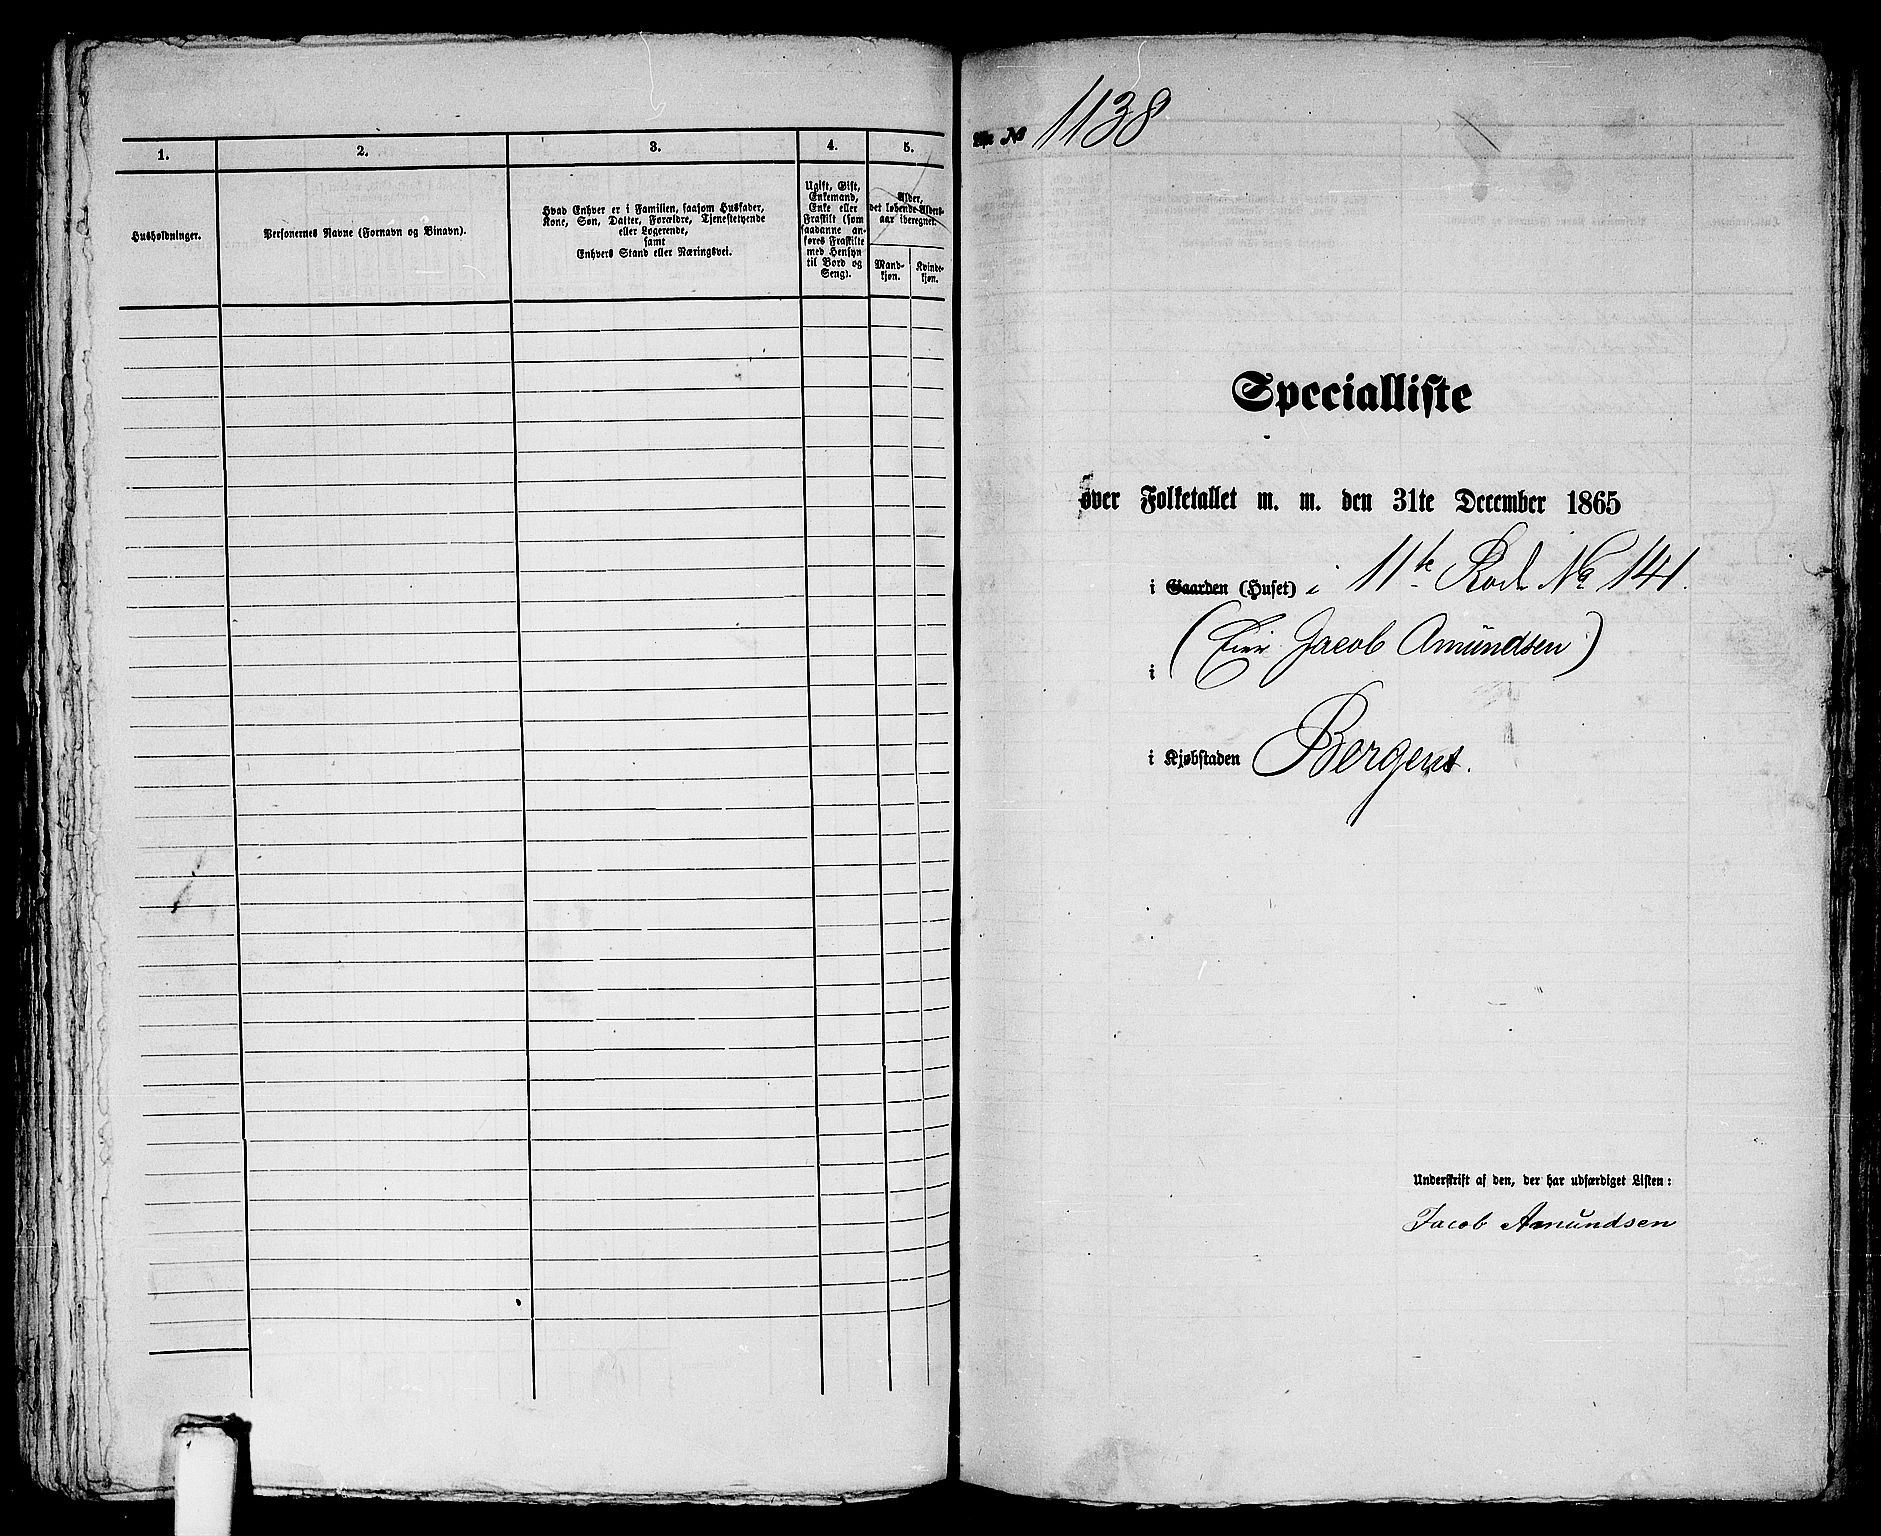 1.
2.
3.
4.
5.
Husholdninger.
Personernes Navne (Fornavn og Binavn).
Hvad Enhver er i Familien, saasom Husfader,
Kone, Søn, Datter, Forældre, Tjenestetyende
eller Logerende,
samt
Enhvers Stand eller Næringsvei.
Ugift, Gift,
Enkemand,
Enke eller
Fraskilt (som
saadanne an-
føres Fraskilte
med Hensyn
til Bord og
Seng).
Alder,
det løbende Alders-
aar iberegnet.
Mand-
kjøn.
Kvinde-
kjøn.
No 1138
Specialliste
over Folketallet m. m. den 31te December 1865
i Gaarden (Huset) i 11te Rode No 141.
(Eier Jacob Amundsen)
i
i Kjøbstaden Bergens.
Underskrift af den, der har udfærdiget Listen:
Jacob Amundsen